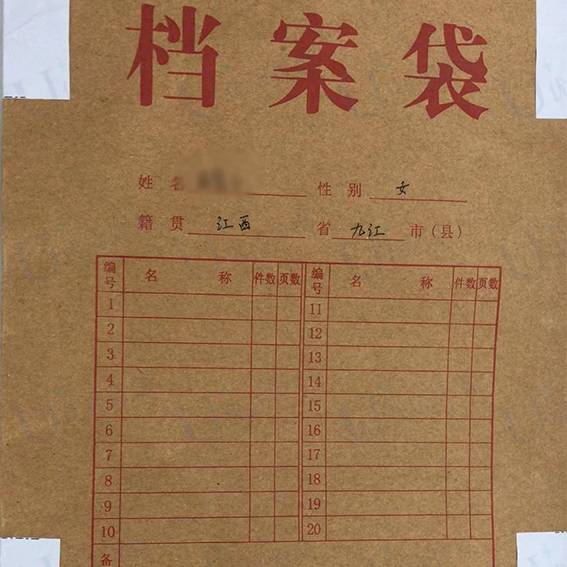 档案袋
姓名 性别 女
籍贯 江西 省 九江 市(县)
编号 名称 件数 页数 编号 名称 件数 页数
1 11
2 12
3 13
4 14
5 15
6 16
7 17
8 18
9 19
10 20
备